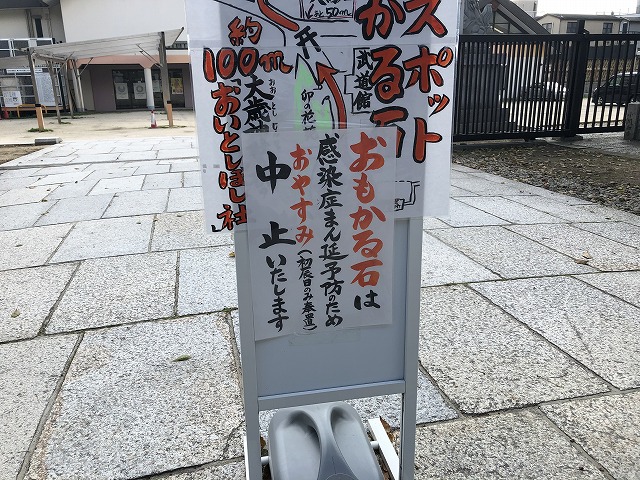 スポット
かる石
武道館
約50m
卯の花
約
100m
大歳
「おいとしぼし社」
おもかる石は
感染症まん延予防のため
おやすみ(初辰日のみ奉置)
中止いたします